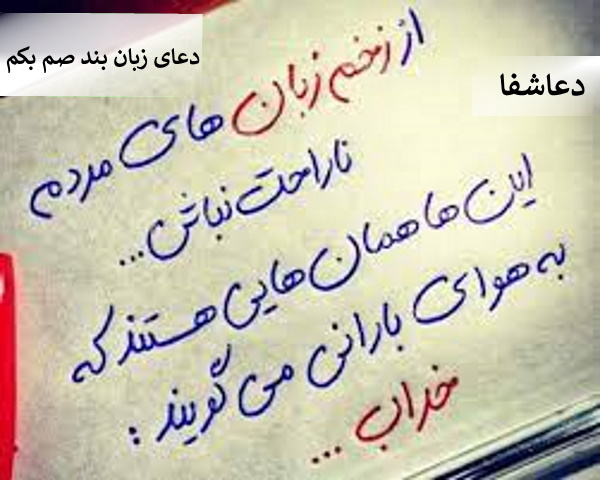 دعای زبان بند صم بکم
دعاشفا
از زخم زبان های مردم
ناراحت نباش...
این ها همان هایی هستند که
به هوای بارانی می گویند :
خراب ...